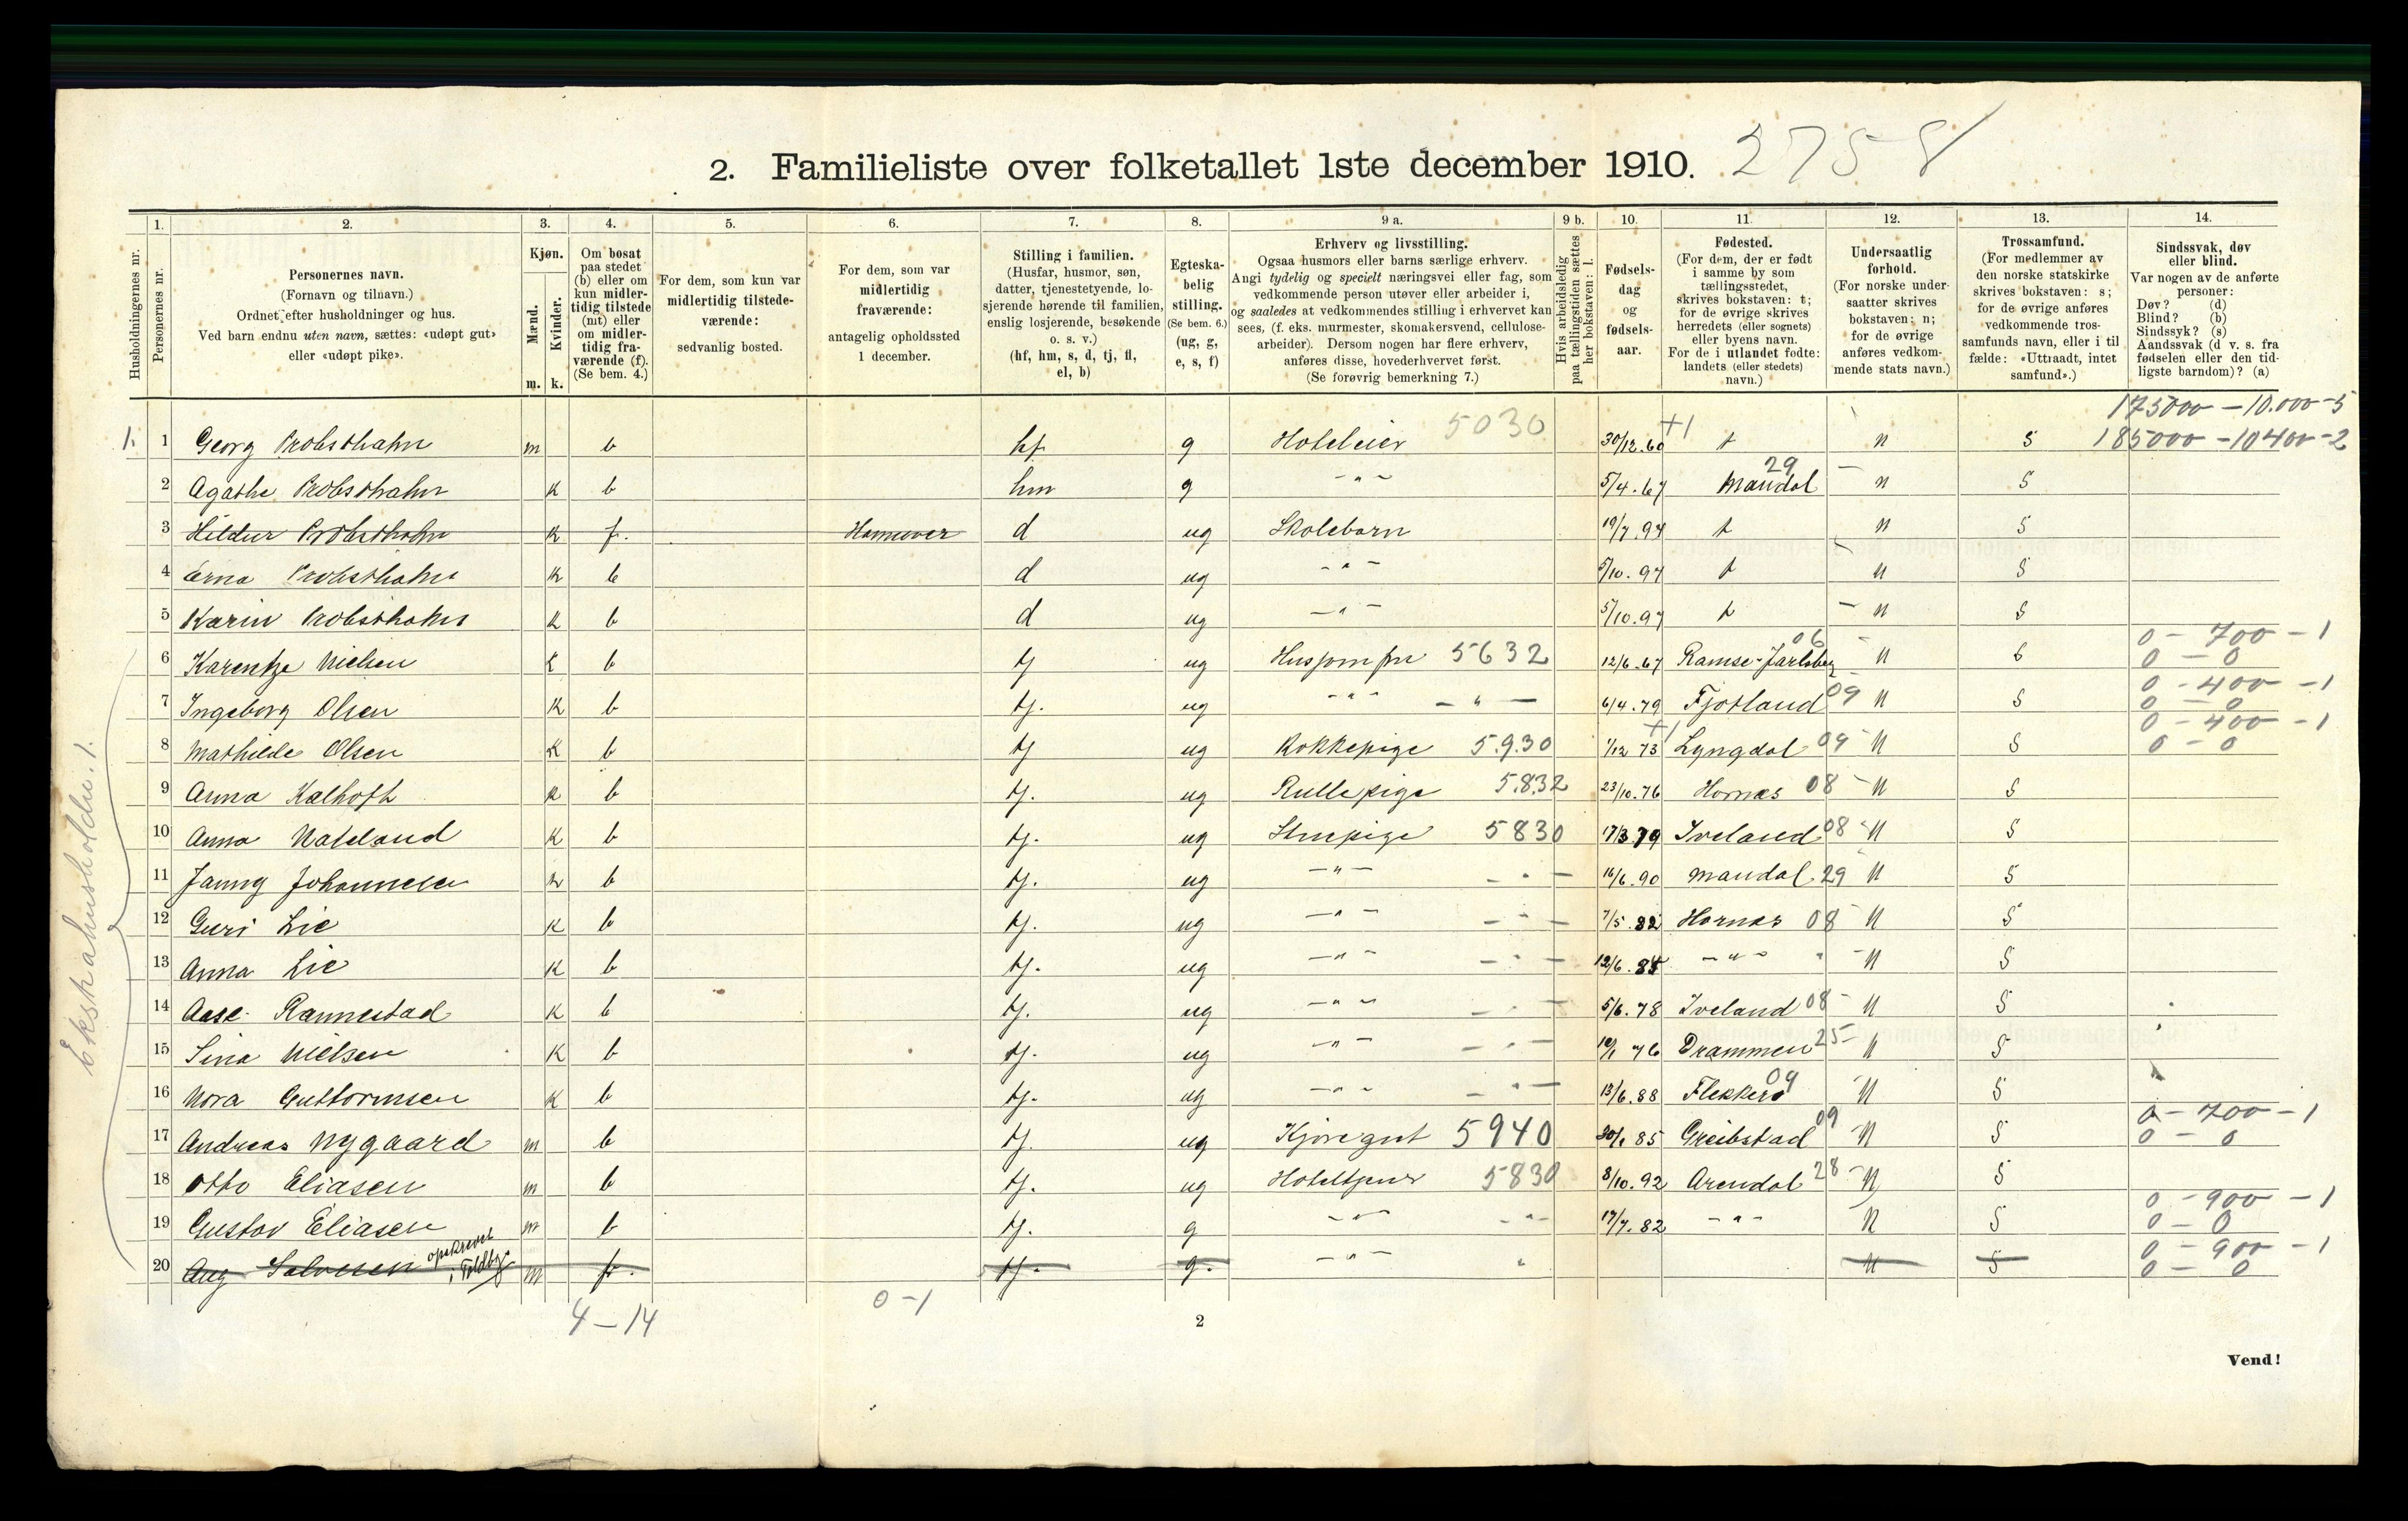 2. Familieliste over folketallet 1ste december 1910. 2758
Husholdningernes nr.
1. Personernes nr.
2. Personernes navn.
(Fornavn og tilnavn.)
Ordnet efter husholdninger og hus.
Ved barn endnu uten navn, sættes: «udøpt gut»
eller «udøpt pike».
3. Kjøn.
Mænd. m.
Kvinder. k.
4. Om bosat
paa stedet
(b) eller om
kun midler-
tidig tilstede
(mt) eller
om midler-
tidig fra-
værende (f).
(Se bem. 4.)
5. For dem, som kun var
midlertidig tilstede-
værende:
sedvanlig bosted.
6. For dem, som var
midlertidig
fraværende:
antagelig opholdssted
1 december.
7. Stilling i familien.
(Husfar, husmor, søn,
datter, tjenestetyende, lo-
sjerende hørende til familien,
enslig losjerende, besøkende
o. s. v.)
(hf, hm, s, d, tj, fl,
el, b)
8. Egteska-
belig
stilling.
(Se bem. 6.)
(ug, g,
e, s, f)
9 a. Erhverv og livsstilling.
Ogsaa husmors eller barns særlige erhverv.
Angi tydelig og specielt næringsvei eller fag, som
vedkommende person utøver eller arbeider i,
og saaledes at vedkommendes stilling i erhvervet kan
sees, (f. eks. murmester, skomakersvend, cellulose-
arbeider). Dersom nogen har flere erhverv,
anføres disse, hovederhvervet først.
(Se forøvrig bemerkning 7.)
9 b. Hvis arbeidsledig
paa tællingstiden sættes
her bokstaven: l.
10. Fødsels-
dag
og
fødsels-
aar.
11. Fødested.
(For dem, der er født
i samme by som
tællingsstedet,
skrives bokstaven: t;
for de øvrige skrives
herredets (eller sognets)
eller byens navn.
For de i utlandet fødte:
landets (eller stedets)
navn.)
12. Undersaatlig
forhold.
(For norske under-
saatter skrives
bokstaven: n;
for de øvrige
anføres vedkom-
mende stats navn.)
13. Trossamfund.
(For medlemmer av
den norske statskirke
skrives bokstaven: s;
for de øvrige anføres
vedkommende tros-
samfunds navn, eller i til
fælde: «Uttraadt, intet
samfund».)
14. Sindssvak, døv
eller blind.
Var nogen av de anførte
personer:
Døv? (d)
Blind? (b)
Sindssyk? (s)
Aandssvak (d v. s. fra
fødselen eller den tid-
ligste barndom)? (a)
175000 - 10.000 - 5
1. 1 Georg Probsthahn m b hf g Hoteleier 5030 30/12.60 +1 t n s 185000 - 10400 - 2
2 Agathe Probsthahn k b hm g - " - 5/4.67 Mandal 29 n s
3 Hildur Probsthahn k f. Hannover d ug Skolebarn 19/7.94 t n s
4 Erna Probsthahn k b d ug - " - 5/10.97 t n s
5 Karin Probsthahn k b d ug - " - 5/10.97 t n s
0 - 700 - 1
6 Nielsen k b tj ug 5632 12/6.67 Ramse-Jarlsberg 06 n s 0 - 0
0 - 400 - 1
7 Ingeborg Olsen k b tj. ug - " - - " - 6/4.79 Fjotland 09 n s 0 - 0
0 - 400 - 1
8 Mathilde Olsen k b tj ug Kokkepige 5.9.30 1/12 73 +1 Lyngdal 09 n s 0 - 0
9 Anna Kalhoft k b tj. ug Rullepige 5.832 23/10.76 Hornes 08 n s
10 Anna Nateland k b tj. ug Stuepige 5830 17/3.79 Iveland 08 n s
11 Janny Johannesen k b tj. ug - " - - " - 16/6.90 Mandal 29 n s
12 Guri Lie k b tj. ug - " - - " - 7/5.82 Hornes 08 n s
13 Anna Lie k b tj. ug - " - - " - 12/6.84 - " - " n s
14 Aase Rannestad k b tj. ug - " - - " - 5/6.78 Iveland 08 n s
15 Sina Nielsen k b tj. ug - " - - " - 76 Drammen 25 n s
16 Nora Guttormsen k b tj. ug - " - - " - 13/6.88 Flekkerø 09 n s
0 - 700 - 1
17 Andreas Nygaard m b tj. ug Kjøregut 5940 85 Greibstad 09 n s 0 - 0
18 Otto Eliasen m b tj. ug Hoteltjener 5830 8/10.92 Arendal 28 n s
0 - 900 - 1
19 Gustav Eliasen m b tj. g - " - - " - 17/7.82 - " - n s 0 - 0
0 - 900 - 1
20 Aug Salvesen opskrevet i Toldbg. m f. tj. g. - " - " n s 0 - 0
Ekstrahusholdn. 1.
4 - 14
0 - 1
2
Vend!